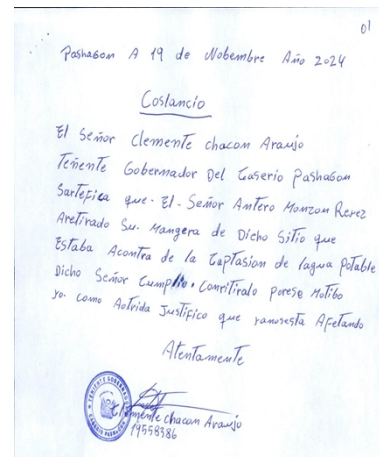 01
Pashagon A 19 de Nobembre Año 2024
Costancio
El Señor Clemente chacon Araujo
Teñente Gobernador Del Caserio Pashagon
Sartefica que. El. Señor Antero Monzon Perez
Aretirado Su. Mangera de Dicho Sitio que
Estaba Acontra de la Captasion de lagua Potable
Dicho Señor Cumplio. Conritiralo porese Motibo
yo. como Aotrida Justifico que yanosesta Afetando
Atentamente
TENIENTE GOBERNADOR
CASERIO PASHAGON
Clemente chacon Araujo
19558586